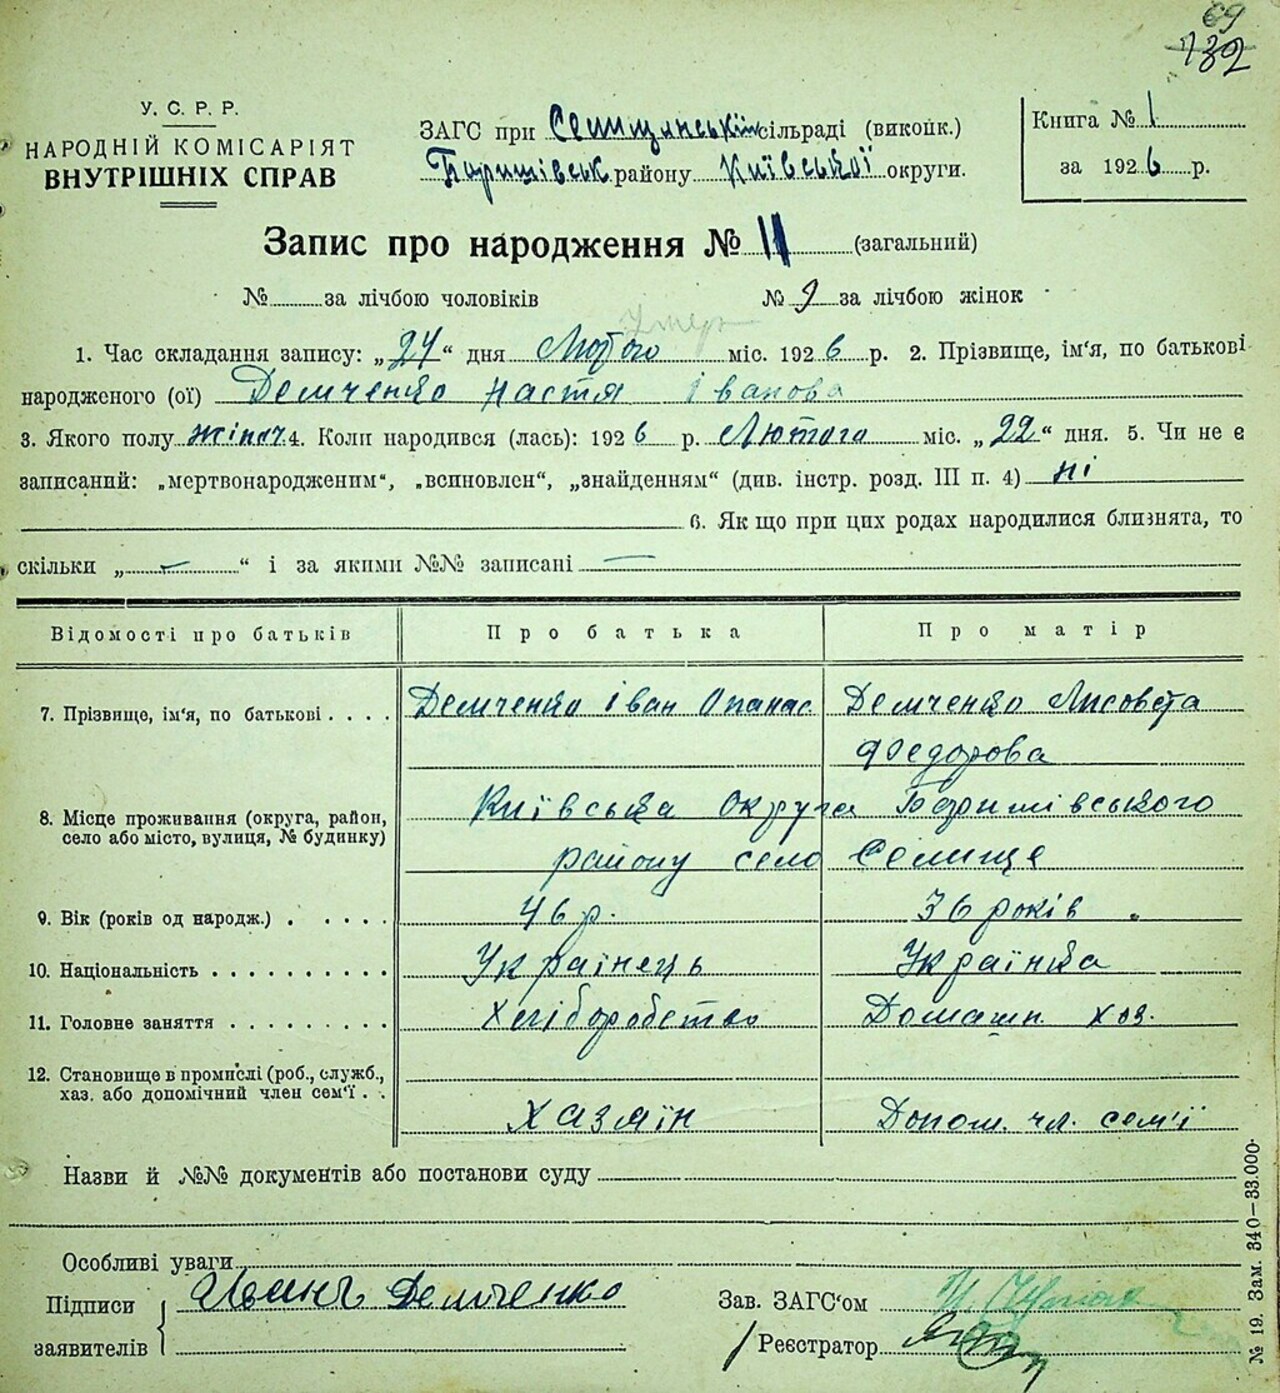 69
132
У. С. Р. Р.
НАРОДНІЙ КОМІСАРІЯТ
ВНУТРІШНІХ СПРАВ
ЗАГС при Селищанській сільраді (виконк.)
Баришівськ району Київської округи.
Книга № 1
за 1926 р.
Запис про народження № 11 (загальний)
№ за лічбою чоловіків № 9 за лічбою жінок
1. Час складання запису: „24“ дня Лютого міс. 1926 р. 2. Прізвище, ім‘я, по батькові
народженого (ої) Демченко Настя Іванова
3. Якого полу жіноч. 4. Коли народився (лась): 1926 р. Лютого міс. „22“ дня. 5. Чи не є
записаний: „мертвонародженим“, „всиновлен“, „знайденням“ (див. інстр. розд. III п. 4) ні
6. Як що при цих родах народилися близнята, то
скільки „—“ і за якими №№ записані —
Відомості про батьків Про батька Про матір
7. Прізвище, ім‘я, по батькові . . . . Демченко Іван Опанас. Демченко Лисовета
Федорова
8. Місце проживання (округа, район,
село або місто, вулиця, № будинку)
Київська Округа Баришівського
району село Селище
9. Вік (років од народж.) . . . . . 46 р. 36 років
10. Національність . . . . . . . . . . Українець Українка
11. Головне заняття . . . . . . . . . Хліборобство Домашн. хоз.
12. Становище в промислі (роб., служб.,
хаз. або допомічний член сем‘ї . .
Хазяїн Допом. чл. сем'ї
Назви й №№ документів або постанови суду
Особливі уваги
Підписи
заявителів
Иванъ Демченко
Зав. ЗАГС‘ом
Реєстратор
№ 19. Зам. 340—33.000.